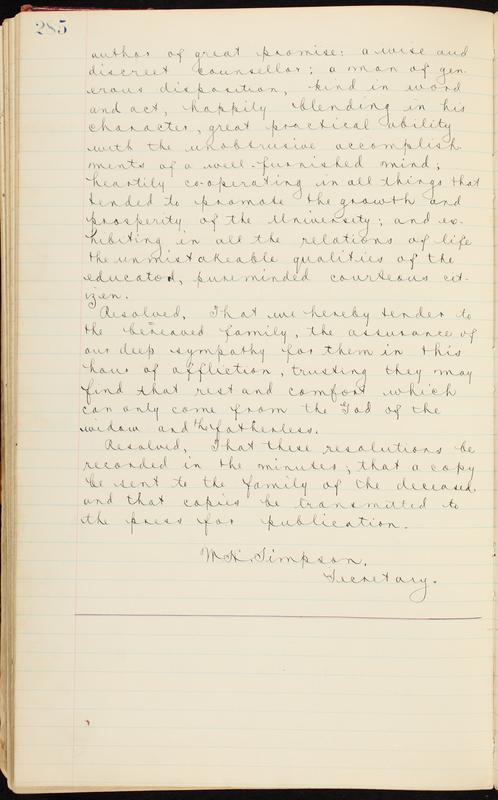 285
author of great promise: a wise and
discreet counsellor; a man of gen-
erous disposition, kind in word
and act, happily blending in his
character, great practical ability
with the unobstrusive accomplish-
ments of a well-furnished mind;
heartily co-operating in all things that
tended to promote the growth and
prosperity of the University; and ex-
hibiting in all the relations of life
the unmistakeable qualities of the
educator, pureminded courteous cit-
izen.
Resolved, That we hereby tender to
the bereaved family, the assurance of
our deep sympathy for them in this
hour of affliction, trusting they may
find that rest and comfort which
can only come from the God of the
widow and the fatherless.
Resolved, That these resolutions be
recorded in the minutes; that a copy
be sent to the family of the deceased
and that copies be transmitted to
the press for publication.
W.H. Simpson.
Secretary.